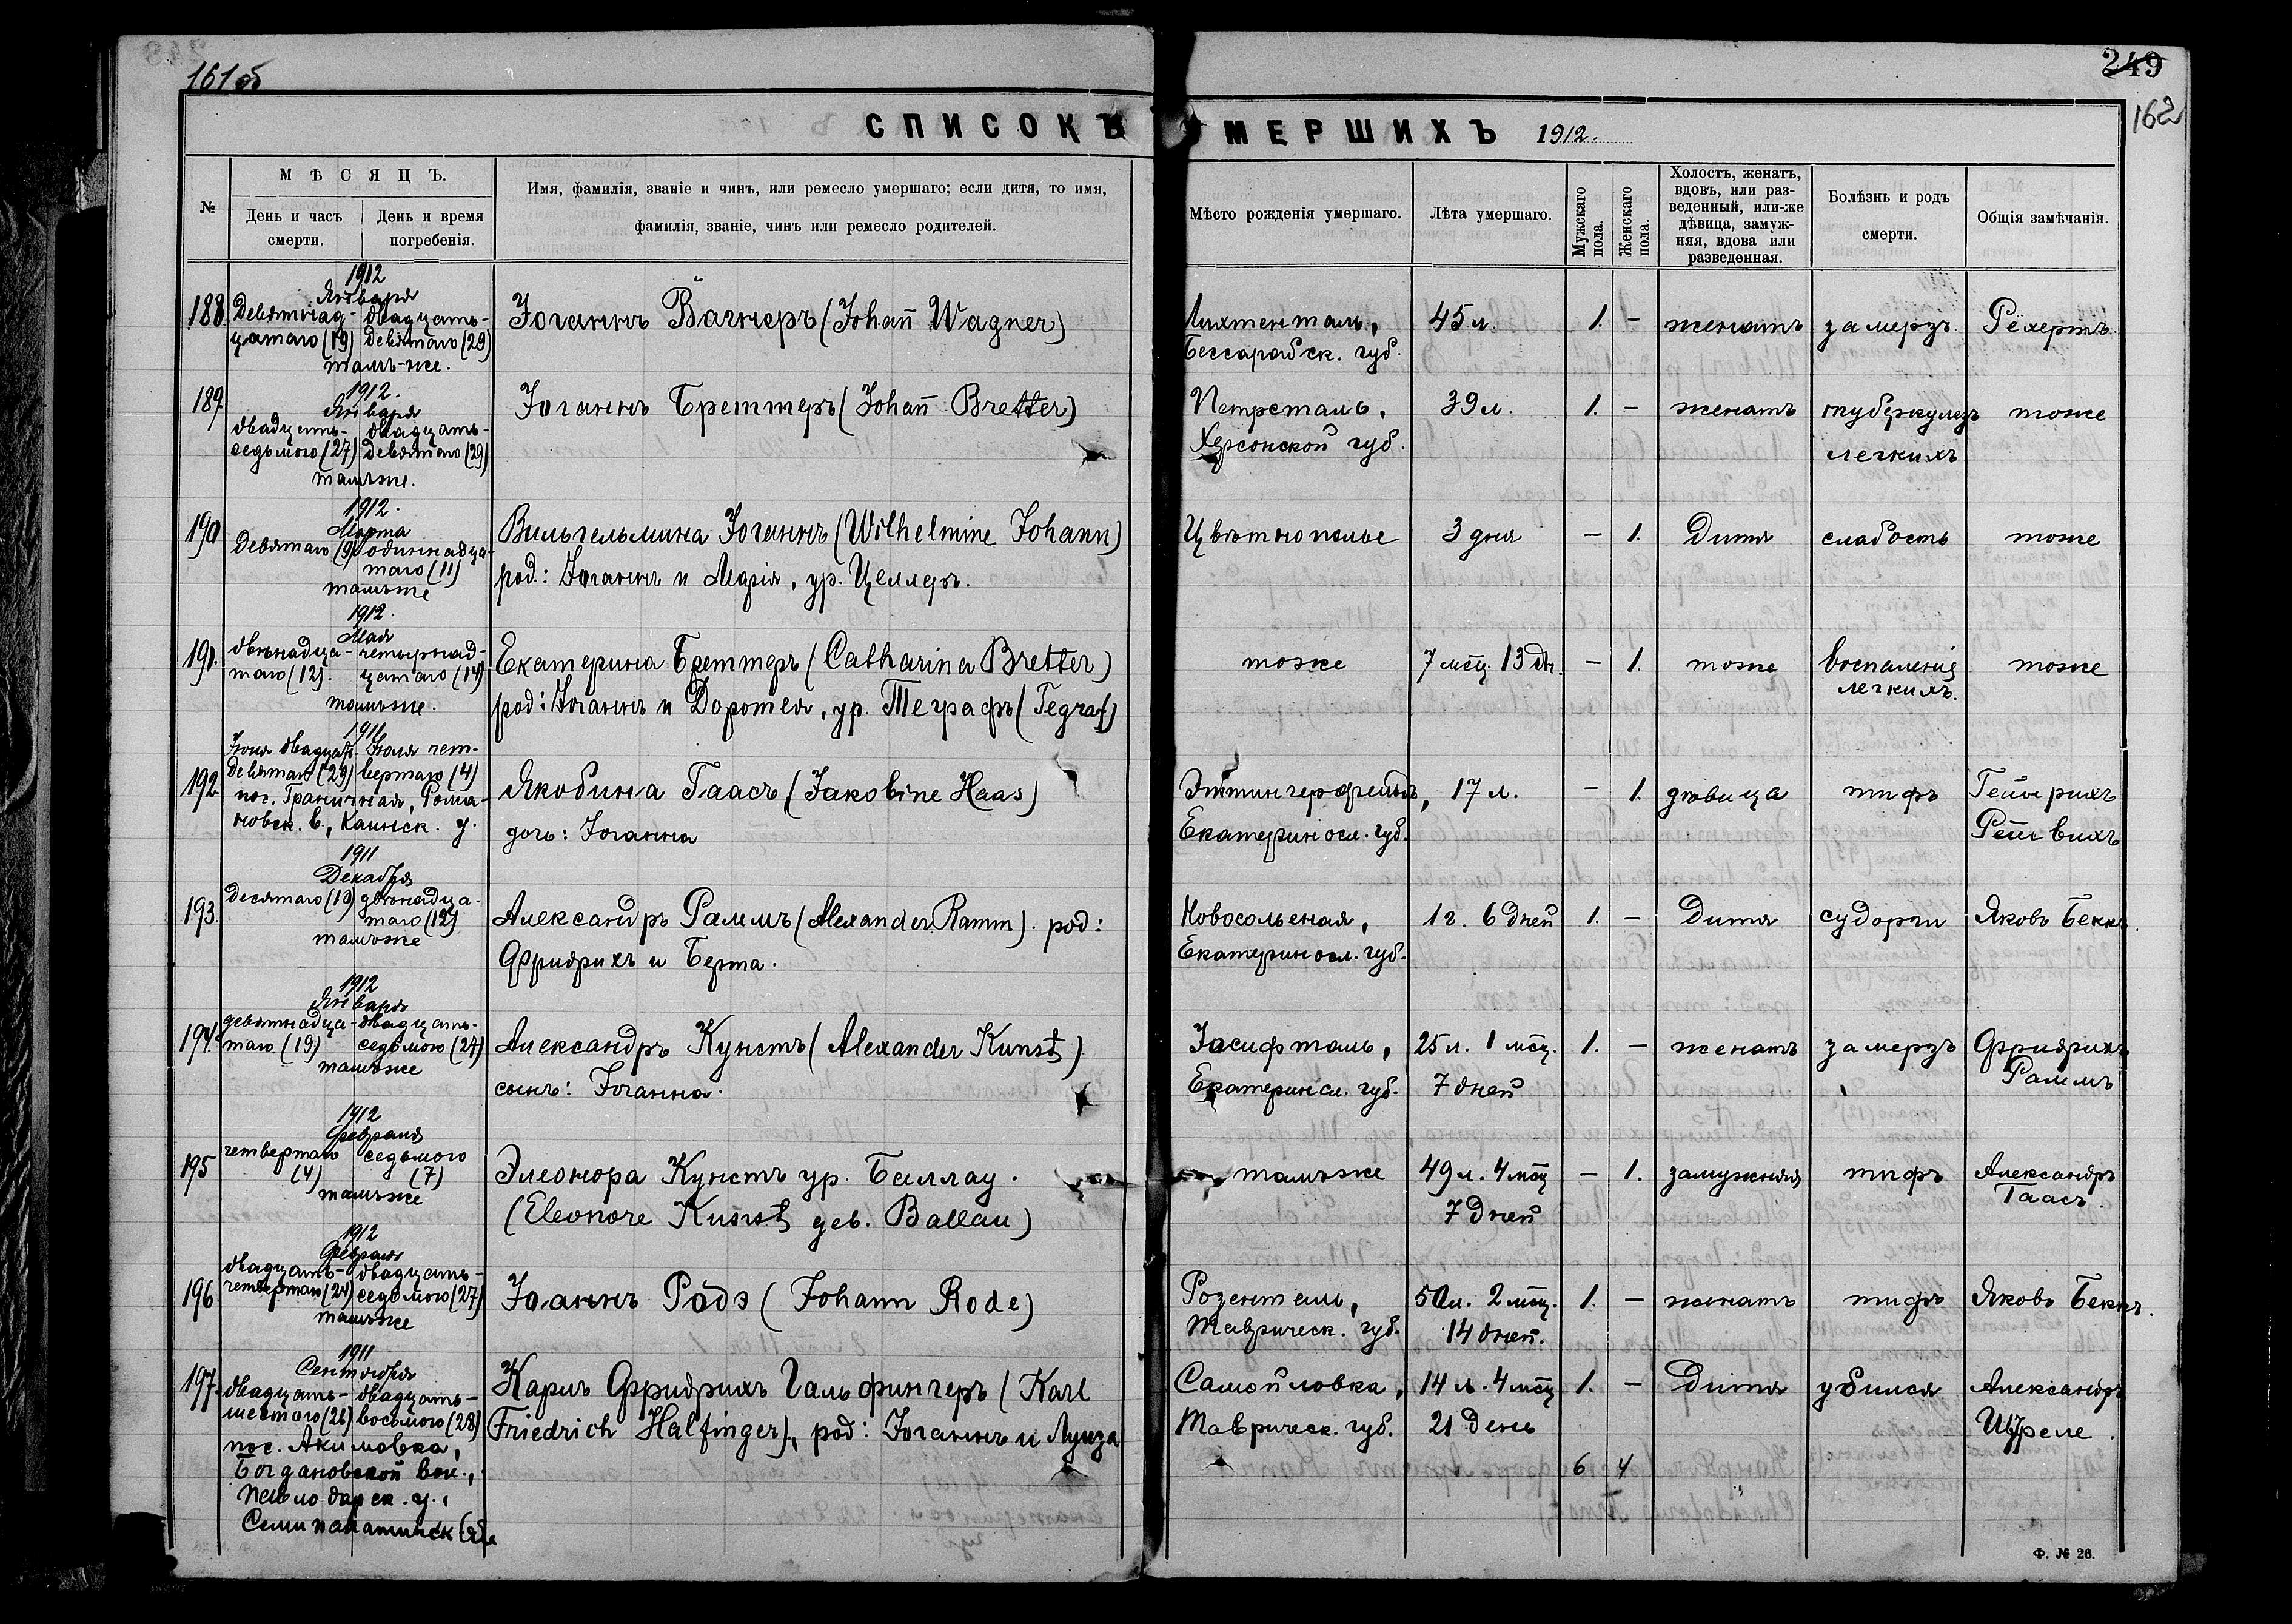 161об
249
162
СПИСОКЪ УМЕРШИХЪ 1912.
№
МѢСЯЦЪ.
День и часъ смерти.
День и время погребенія.
Имя, фамилія, званіе и чинъ, или ремесло умершаго; если дитя, то имя,
фамилія, званіе, чинъ или ремесло родителей.
Мѣсто рожденія умершаго.
Лѣта умершаго.
Мужскаго пола.
Женскаго пола.
Холостъ, женатъ,
вдовъ, или раз-
веденный, или-же
дѣвица, замуж-
няя, вдова или
разведенная.
Болѣзнь и родъ
смерти.
Общія замѣчанія.
188.
1912
Января
Девятнад- двадцать-
цатаго (19) девятаго (29)
тамъ-же.
Іоганнъ Вагнеръ (Johañ Wagner)
Лихтенталь, 45 л. 1. – женатъ замерзъ Рёхертъ
Бессарабск. губ.
189.
1912.
Января
двадцать- двадцать-
седьмого (27) девятаго (29)
тамъже.
Іоганнъ Бреттеръ (Johañ Bretter)
Петрсталь, 39 л. 1. – женатъ туберкулезъ тоже
Херсонской губ. легкихъ
190
1912.
Марта
Девятаго (9) одиннадца-
таго (11)
тамъже
Вильгельмина Іоганнъ (Wilhelmine Johann)
род.: Іоганнъ и Марія, ур. Целлеръ.
Цвѣтнополье 3 дня – 1. Дитя слабость тоже
191.
1912.
Мая
двѣнадца- четырнад-
таго (12). цатаго (14)
тамъже.
Екатерина Бреттеръ (Catharina Bretter)
род: Іоганнъ и Доротея, ур. Теграфъ (Tegraf)
тоже 7 мѣс. 13 дн. – 1. тоже воспаленія тоже
легкихъ.
192.
1911
Іюня двадцать- Іюля чет-
девятаго (29) вертаго (4)
пос. Граничная, Рома-
новск. в., Каинск. у.
Якобина Гаасъ (Jakobine Haas)
дочь: Іоганна
Эттингерфельдъ, 17 л. – 1. дѣвица тифъ Гейнрихъ
Екатериносл. губ.
193.
1911
Декабря
десятаго (10) двѣнадца-
таго (12)
тамъже
Александръ Раммъ (Alexander Ramm). род:
Фридрихъ и Берта.
1 г. 6 дней 1. – Дитя судорги Яковъ Беккъ.
Екатериносл. губ.
194.
1912
Января
девятнадца- двадцать-
таго (19) седьмого (27)
тамъже
Александръ Кунстъ (Alexander Kunst)
сынъ: Іоганна.
Іосифталь, 25 л. 1 мѣс. 1. – женатъ замерзъ Фридрихъ
Екатеринсл. губ. 7 дней Раммъ
195
1912
Февраля
четвертаго седьмого
(4) (7)
тамъже
Элеонора Кунстъ ур. Баллау.
(Eleonore Kunst geb. Ballau)
тамъже 49 л. 4 мѣс – 1. замужняя тифъ Александръ
7 дней Гаасъ.
196
1912
Февраля
двадцать- двадцать-
четвертаго (24) седьмого (27)
тамъже
Іоаннъ Родэ (Johann Rode)
Розенталь, 50 л. 2 мѣс. 1. – женатъ тифъ Яковъ Беккъ.
Таврическ. губ. 14 дней.
197.
1911
Сентября
двадцать- двадцать-
шестаго (26) восьмого (28)
пос. Акимовка,
Богдановской вол.,
Павлодарск. у.,
Семипалатинск обл
Карлъ Фридрихъ Гальфингеръ (Karl
Friedrich Halfinger), род: Іоганнъ и Луиза
Самойловка, 14 л. 4 мѣс 1. – Дитя убился Александръ
Таврическ. губ. 21 день
6 4
Ф. № 26.